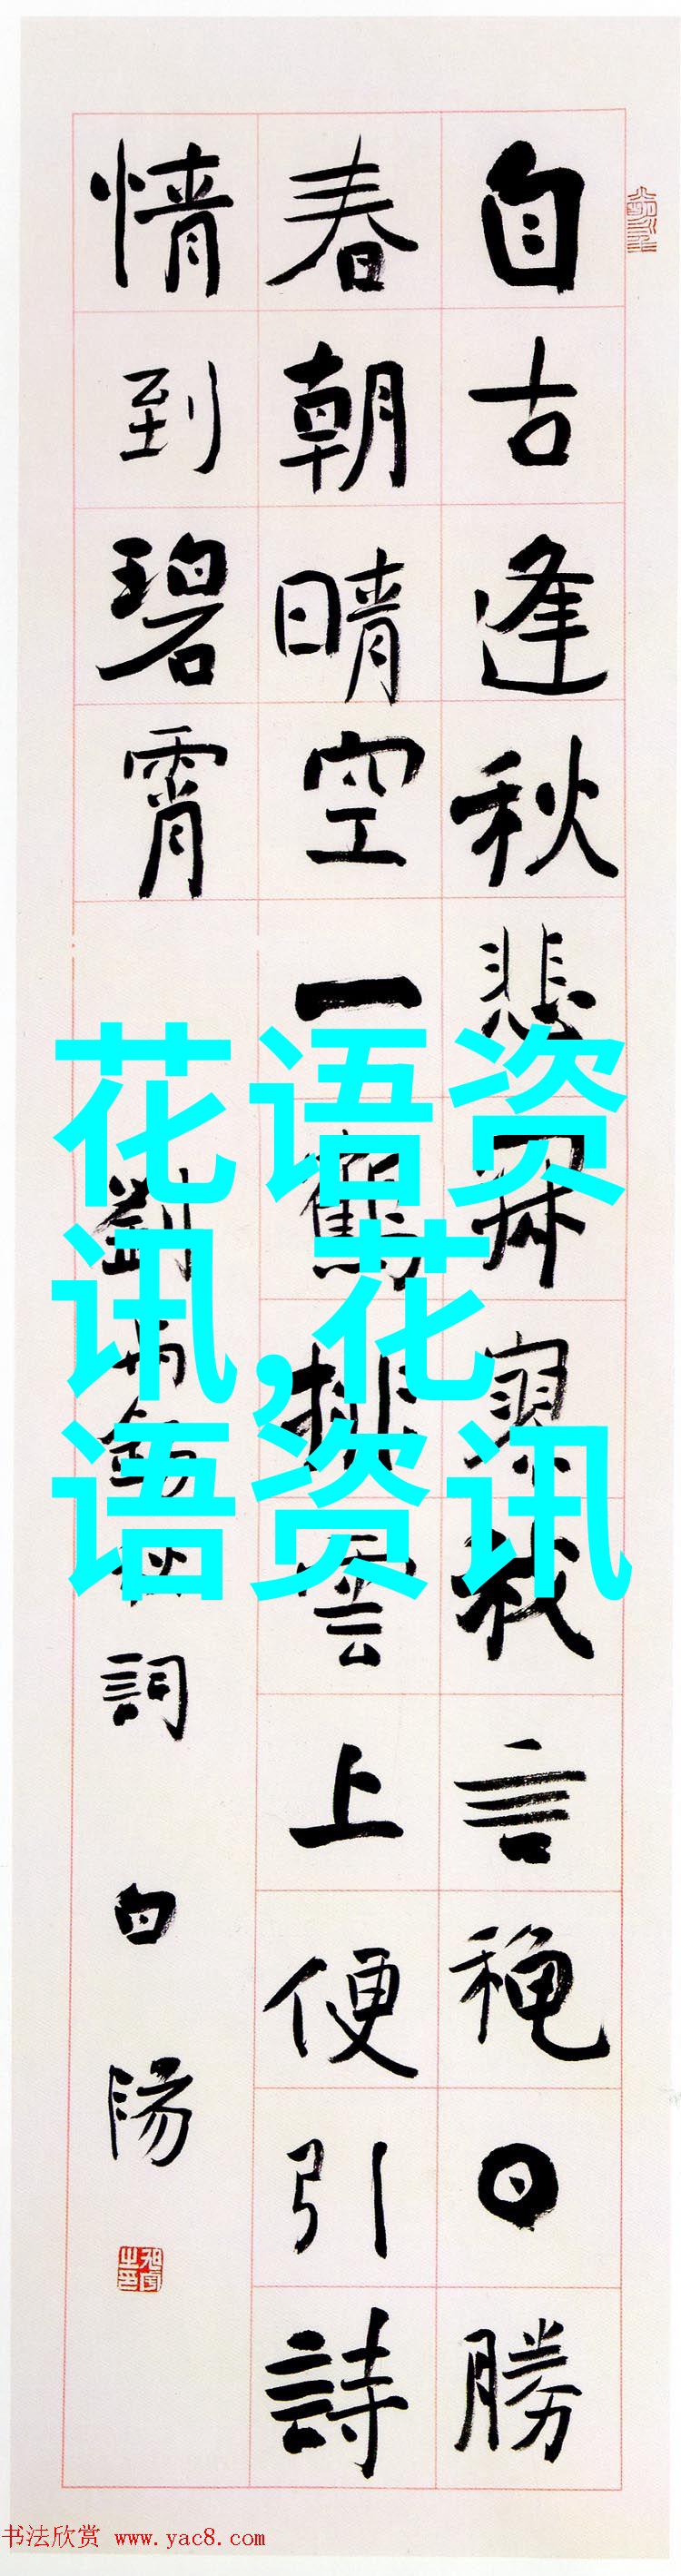 自古逢秋悲寂寥我言穐日勝
春朝晴空一鶴排雲上便引詩
情到碧霄
劉禹錫秋詞 白陽
花语资
讯,花
语资讯
书法欣赏 www.yac8.com